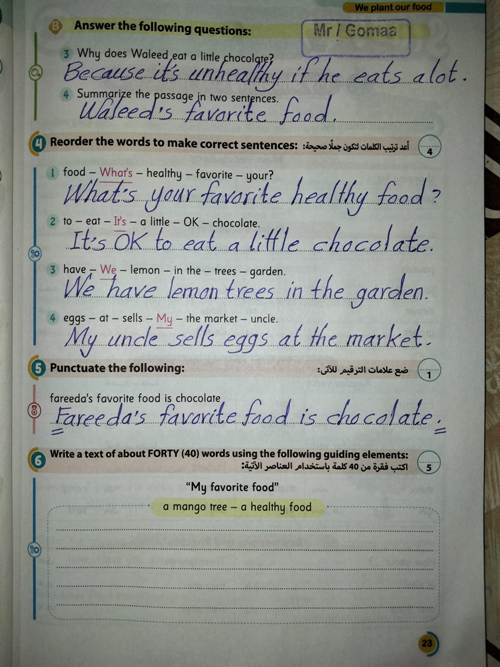 We plant our food
B Answer the following questions:
Mr / Gomaa
3 Why does Waleed eat a little chocolate?
Because it's unhealthy if he eats a lot.
4 Summarize the passage in two sentences.
Waleed's favorite food.
4 Reorder the words to make correct sentences: أعد ترتيب الكلمات لتكون جملًا صحيحة:
4
1 food – What's – healthy – favorite – your?
What's your favorite healthy food?
2 to – eat – It's – a little – OK – chocolate.
It's OK to eat a little chocolate.
3 have – We – lemon – in the – trees – garden.
We have lemon trees in the garden.
4 eggs – at – sells – My – the market – uncle.
My uncle sells eggs at the market.
5 Punctuate the following: ضع علامات الترقيم للآتى:
1
fareeda's favorite food is chocolate
Fareeda's favorite food is chocolate.
6 Write a text of about FORTY (40) words using the following guiding elements:
اكتب فقرة من 40 كلمة باستخدام العناصر الآتية:
5
“My favorite food”
a mango tree – a healthy food
23